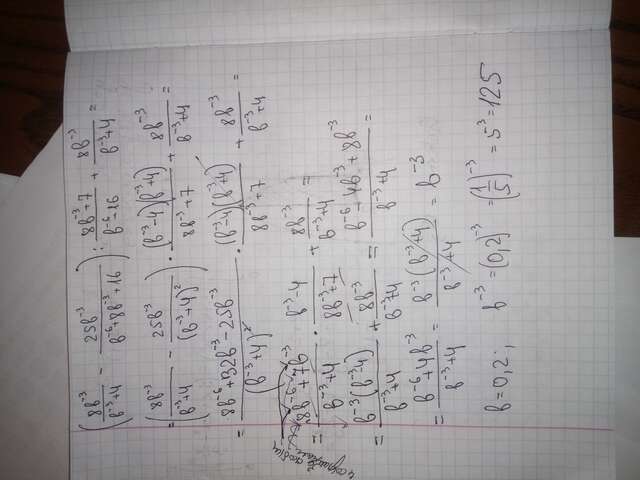 (8b⁻³/(b⁻³+4) − 25b⁻³/(b⁻⁶+8b⁻³+16)) : (8b⁻³+7)/(b⁻⁶−16) + 8b⁻³/(b⁻³+4) =
= (8b⁻³/(b⁻³+4) − 25b⁻³/(b⁻³+4)²) · (b⁻³−4)(b⁻³+4)/(8b⁻³+7) + 8b⁻³/(b⁻³+4) =
= (8b⁻⁶+32b⁻³−25b⁻³)/(b⁻³+4)² · (b⁻³−4)(b⁻³+4)/(8b⁻³+7) + 8b⁻³/(b⁻³+4) =
= (8b⁻⁶+7b⁻³)/(b⁻³+4) · (b⁻³−4)/(8b⁻³+7) + 8b⁻³/(b⁻³+4) =
= b⁻³(b⁻³−4)/(b⁻³+4) + 8b⁻³/(b⁻³+4) = (b⁻⁶−4b⁻³+8b⁻³)/(b⁻³+4) =
= (b⁻⁶+4b⁻³)/(b⁻³+4) = b⁻³(b⁻³+4)/(b⁻³+4) = b⁻³
b=0,2; b⁻³=(0,2)⁻³ =(1/5)⁻³ =5⁻³=125